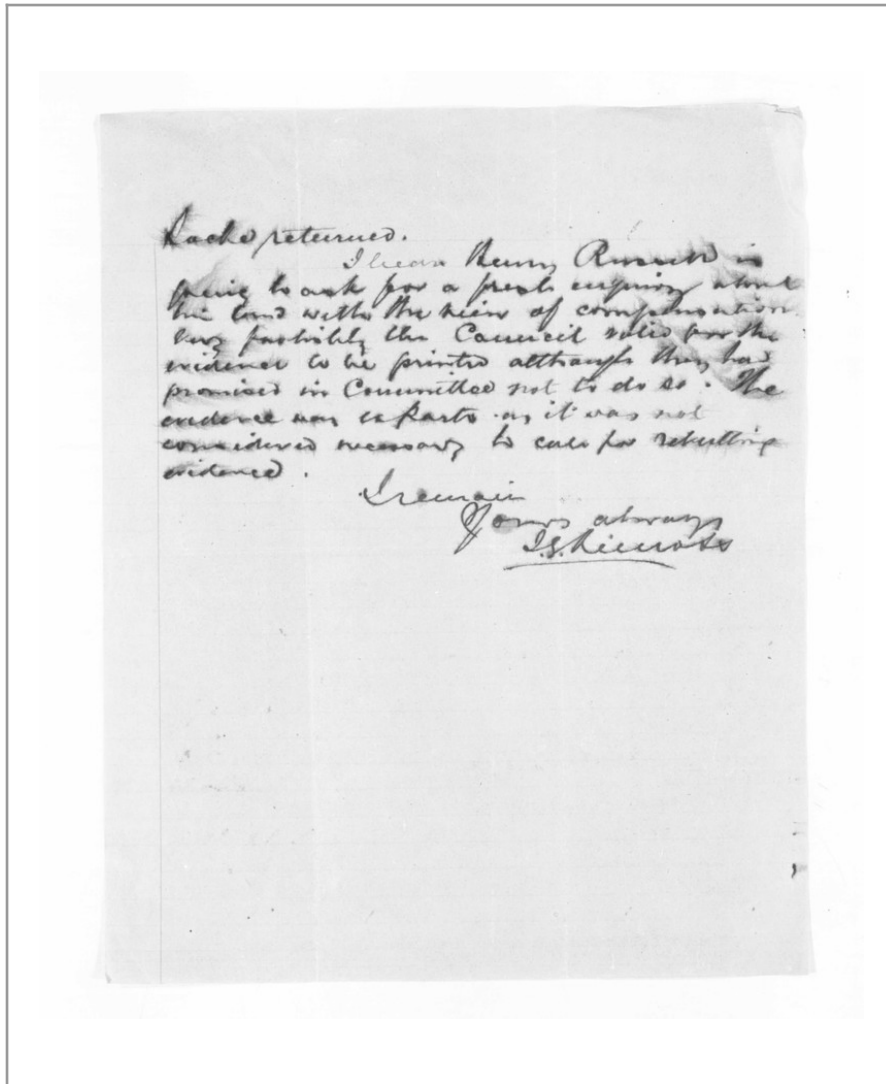 returned.
I hear Henry Russell is
going to ask for a fresh enquiry about
his land with the view of compensation.
Very foolishly the Council voted for the
evidence to be printed although they had
promised in Committee not to do so. The
evidence was exparte as it was not
considered necessary to call for rebutting
evidence.
I remain
Yours always